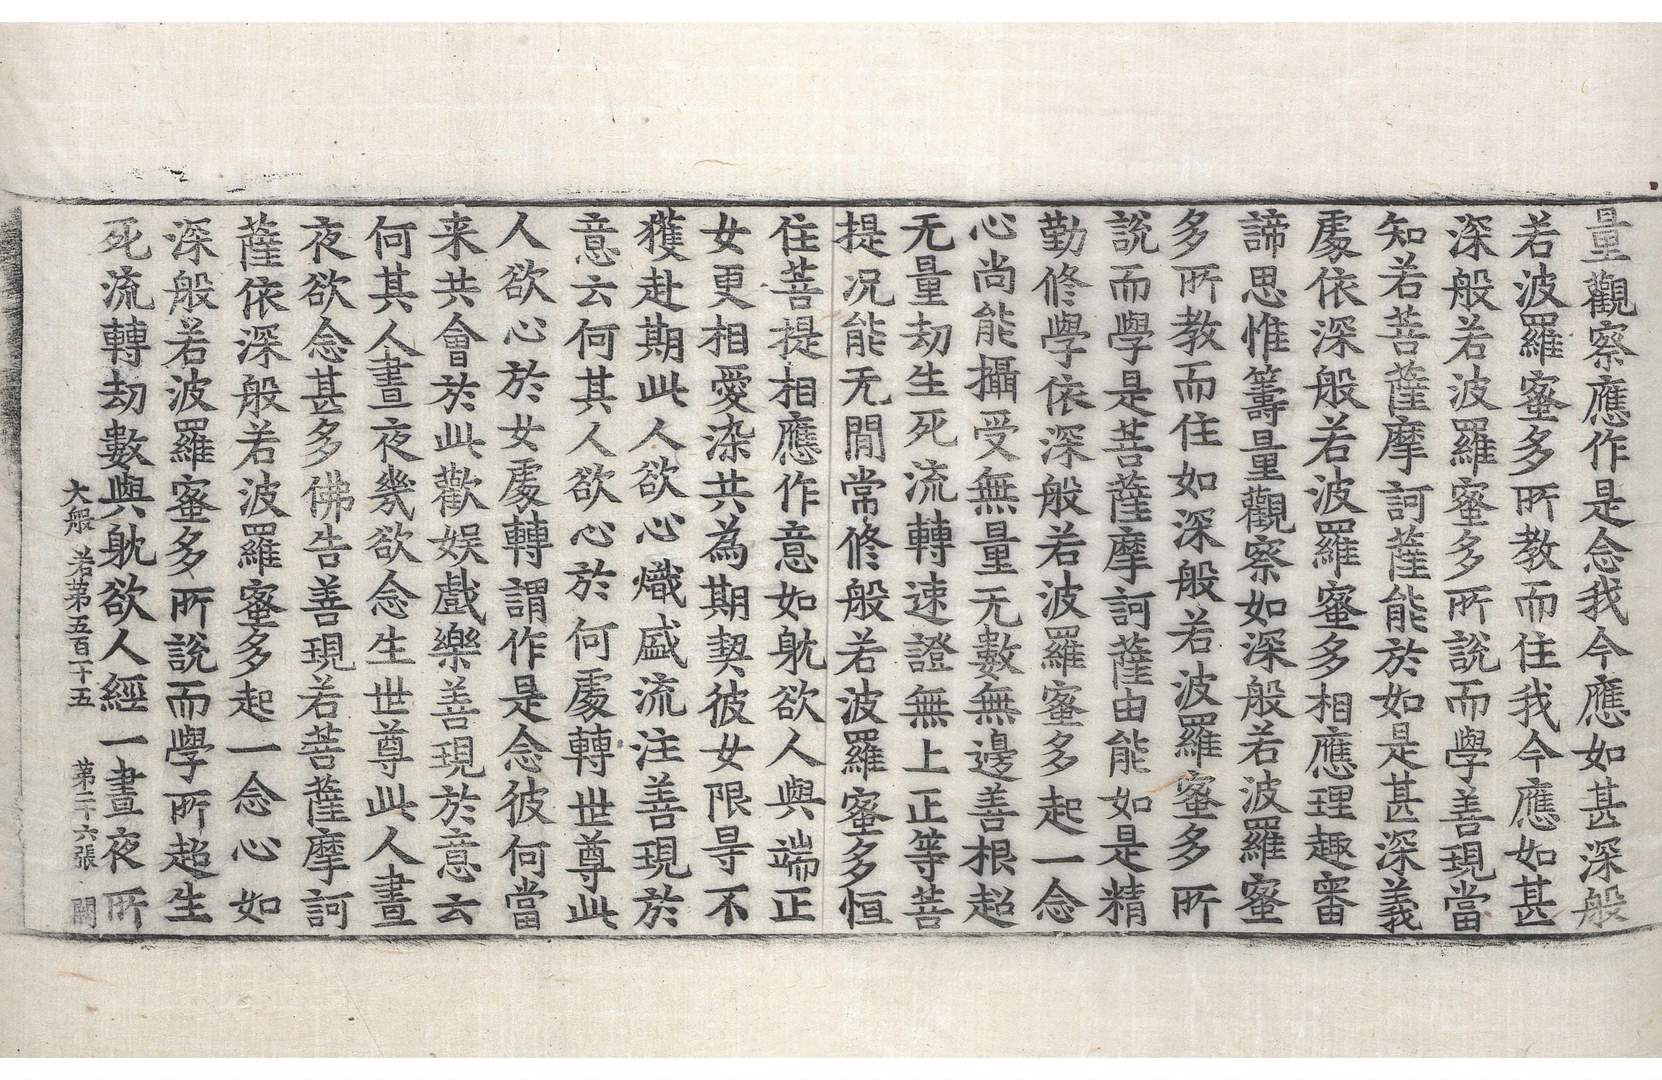 量觀察應作是念我今應如甚深般
若波羅蜜多所教而住我今應如甚
深般若波羅蜜多所說而學善現當
知若菩薩摩訶薩能於如是甚深義
處依深般若波羅蜜多相應理趣審
諦思惟籌量觀察如深般若波羅蜜
多所教而住如深般若波羅蜜多所
說而學是菩薩摩訶薩由能如是精
勤修學依深般若波羅蜜多起一念
心尚能攝受無量无數無邊善根超
无量劫生死流轉速證無上正等菩
提况能无閒常修般若波羅蜜多恒
住菩提相應作意如躭欲人與端正
女更相愛染共為期契彼女限㝵不
獲赴期此人欲心熾盛流注善現於
意云何其人欲心於何處轉世尊此
人欲心於女處轉謂作是念彼何當
来共會於此歡娛戲樂善現於意云
何其人晝夜幾欲念生世尊此人晝
夜欲念甚多佛告善現若菩薩摩訶
薩依深般若波羅蜜多起一念心如
深般若波羅蜜多所說而學所超生
死流轉劫數與躭欲人經一晝夜所
大般若第五百十五 第二十六張